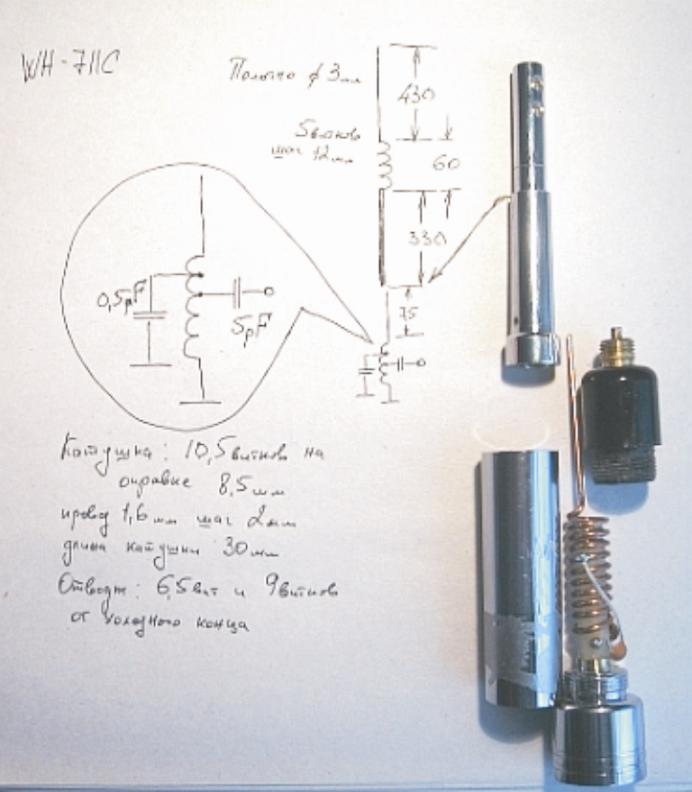 WH-711C
Полотно ϕ 3мм
430
5витков
шаг 12мм
60
330
75
0,5pF
5pF
Катушка: 10,5витков на
оправке 8,5мм
провод 1,6мм шаг 2мм
длина катушки 30мм
Отводы: 6,5вит и 9витков
от холодного конца